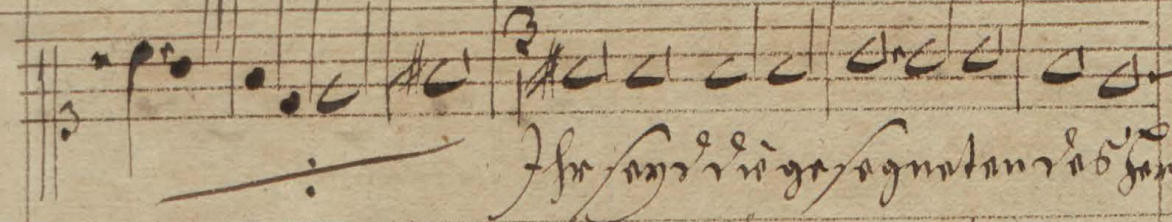 3
3
Ihr seyd die gesegneten des Her